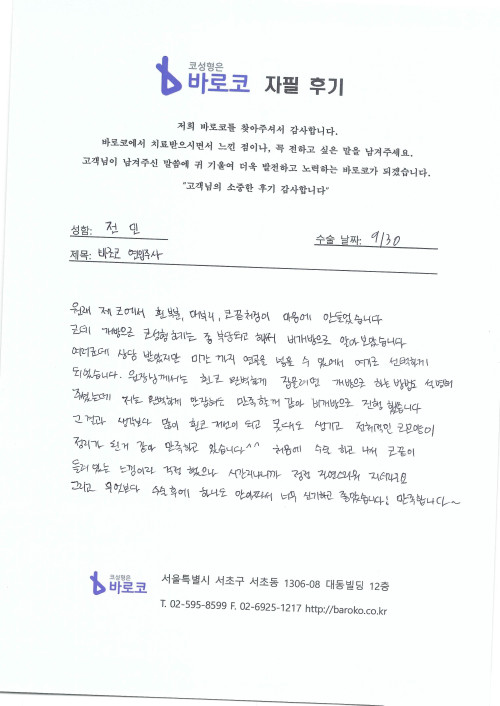 코성형은
바로코 자필 후기
저희 바로코를 찾아주셔서 감사합니다.
바로코에서 치료받으시면서 느낀 점이나, 꼭 전하고 싶은 말을 남겨주세요.
고객님이 남겨주신 말씀에 귀 기울여 더욱 발전하고 노력하는 바로코가 되겠습니다.
"고객님의 소중한 후기 감사합니다"
성함: 전 민
수술 날짜: 9/30
제목: 바로코 연일주사
원래 제 코에서 휜뼈, 매부리, 코끝처짐이 마음에 안들었습니다
근데 개방으로 코성형 하기는 좀 부담되고 해서 비개방으로 알아보았습니다
여러군데 상담 받았지만 미간 까지 연골을 넣을 수 있어서 여기로 선택하게
되었습니다. 원장님께서는 휜코 완벽하게 잡을려면 개방으로 하는 방법도 설명해
주셨는데 저는 완벽하게 안잡혀도 만족할꺼 같아 비개방으로 진행 했습니다
그 결과 생각보다 많이 휜코 개선이 되고 콧대도 생기고 전체적인 코모양이
정리가 된거 같아 만족하고 있습니다^^ 처음에 수술 하고 나서 코끝이
들려 있는 느낌이라 걱정 했으나 시간지나니까 점점 자연스러워 지더라구요
그리고 무엇보다 수술후에 하나도 안아파서 너무 신기하고 좋았습니다! 만족합니다~
코성형은
바로코
서울특별시 서초구 서초동 1306-08 대동빌딩 12층
T. 02-595-8599 F. 02-6925-1217 http://baroko.co.kr